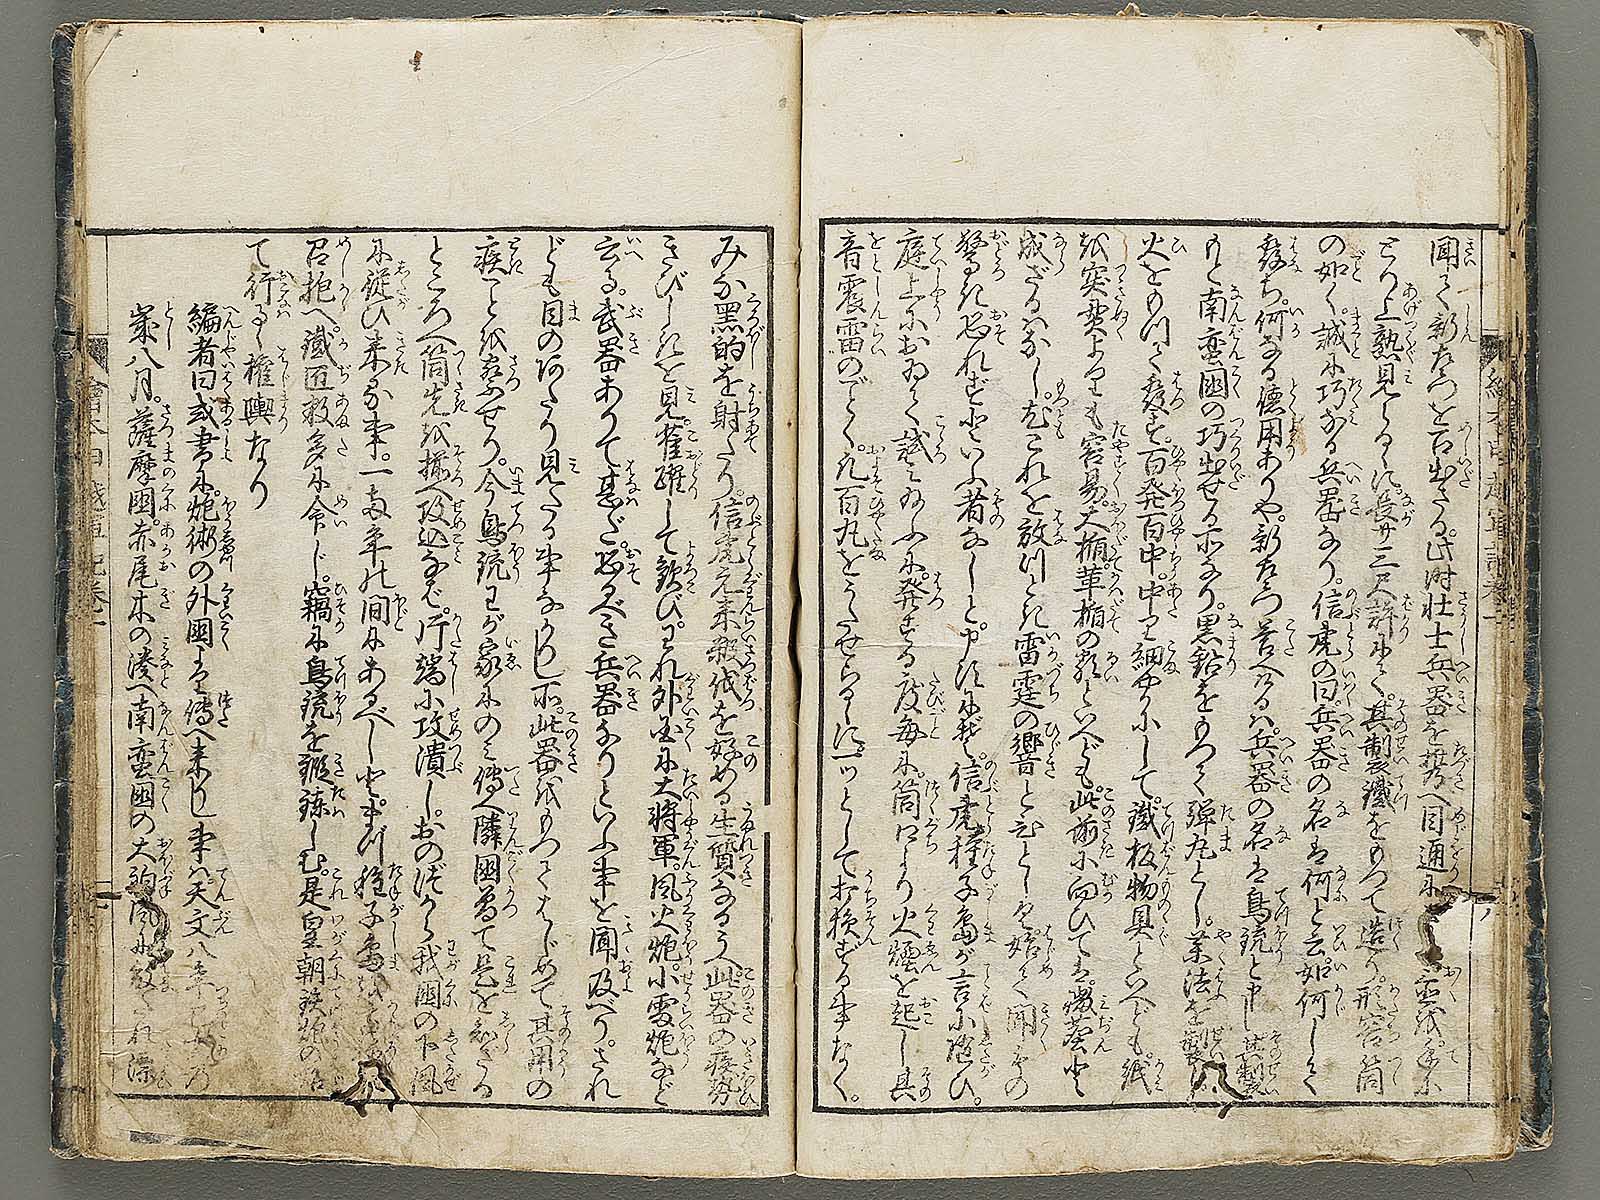 聞て新左衛門を召出さる。此時壮士兵器を携へ目通に
とり上熟見くるに。長サ三尺許にて。其制製鐵をもつて造り。形容筒
の如く。誠に巧なる兵器なり。信虎の曰。兵器の名は何と云。如何して
發ち。何なる徳用ありや。新左衛門答へけるハ。兵器の名は鳥銃と申し
もと南蛮国の巧出せる所なり。黒鉛をもつて弾丸とし。薬法を
火をもつて發す。百発百中。中る細やかにして。鐵板物具といへども。紙
を突貫よりも容易。大楯革楯の類といへども。此前に向ひては。微塵と
成ざるハなし。尤これを放つとき雷霆の響とひとしく始て聞もの
驚き恐れずといふ者なしと。申すにぞ。信虎種子島が言に随ひ。
庭上におゐて試ミ給ふに。発する度毎に。筒口より火煙を起し其
音震雷のごとく。凡百丸をうたせらるるに。一ツとして打損ずる事なく。
みな黒的を射たり。信虎元来殺伐を好める生質なるうへ。此器の
きびしきを見。雀躍して歓び。われ外国に大将軍。風火炮。小雷炮など
云る。武器ありて甚だ恐るべき兵器なりといふ事を聞及べり。され
ども目のあたり見たる事なかりし所。此器をもつてはじめて其用の
疾ことを察せり。今鳥銃わが家にのミ傳へ隣国曽て是を知ざる
ところへ筒先を揃へ攻込なば。片端に攻潰し。おのづから我国の下風
に従ひ来な事。一両年の間にあるべしと。まづ種子島を
召抱へ。鐵匠数多に命じ。竊に鳥銃を鍛錬しむ。是皇朝鉄炮の
て行る権輿なり
編者曰或書に。炮術の外国より傳へ来りし事ハ天文八年
歳八月。薩摩国。赤尾木の湊へ南蛮国の大舶
繪本甲越軍記巻之一